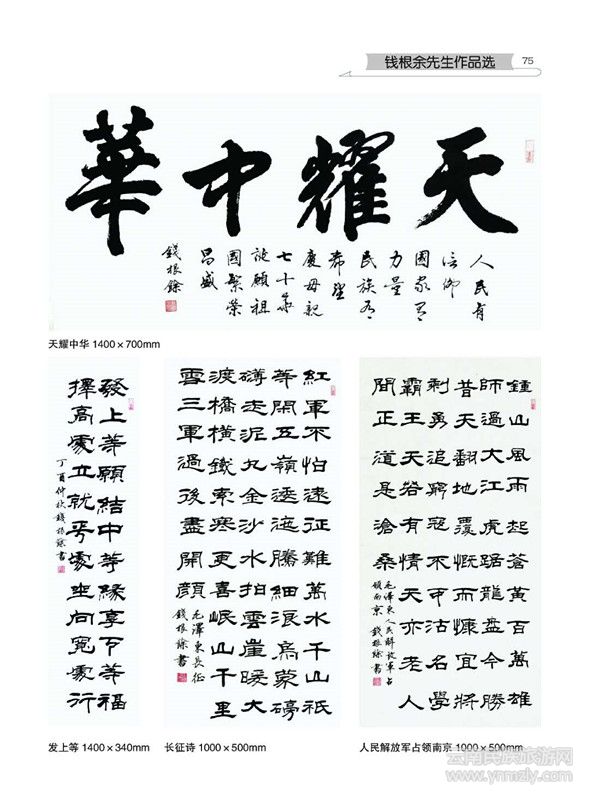 钱根余先生作品选
75
天耀中華
人民有
信仰
國家有
力量
民族有
希望
慶母親
七十華
誕願祖
國繁榮
昌盛
錢根餘
天耀中华 1400×700mm
發上等願結中等緣享下等福
擇高處立就平處坐向寬處行
丁酉仲秋錢根餘書
紅軍不怕遠征難萬水千山祇
等閑五嶺逶迤騰細浪烏蒙磅
礴走泥丸金沙水拍雲崖暖大
渡橋橫鐵索寒更喜岷山千里
雪三軍過後盡開顏
毛澤東長征
錢根餘書
鍾山風雨起蒼黃百萬雄
師過大江虎踞龍盤今勝
昔天翻地覆慨而慷宜將
剩勇追窮寇不可沽名學
霸王天若有情天亦老人
間正道是滄桑
毛澤東人民解放軍占
領南京 錢根餘書
发上等 1400×340mm
长征诗 1000×500mm
人民解放军占领南京 1000×500mm
云南民族旅游网
www.ynmzly.com